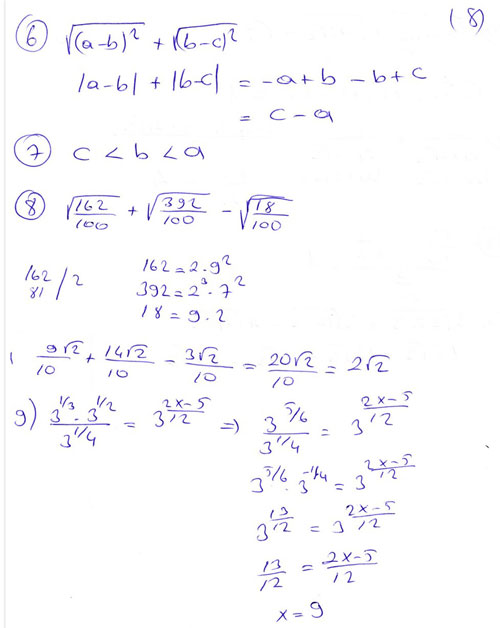 (8)
⑥ √(a-b)² + √(b-c)²
|a-b| + |b-c| = -a+b -b+c
= c-a
⑦ c < b < a
⑧ √162/100 + √392/100 - √18/100
162 / 2
81
162 = 2·9²
392 = 2³·7²
18 = 9·2
9√2/10 + 14√2/10 - 3√2/10 = 20√2/10 = 2√2
9) 3^1/3 · 3^1/2 / 3^1/4 = 3^(2x-5)/12 ⇒ 3^5/6 / 3^1/4 = 3^(2x-5)/12
3^5/6 · 3^-1/4 = 3^(2x-5)/12
3^13/12 = 3^(2x-5)/12
13/12 = 2x-5/12
x = 9